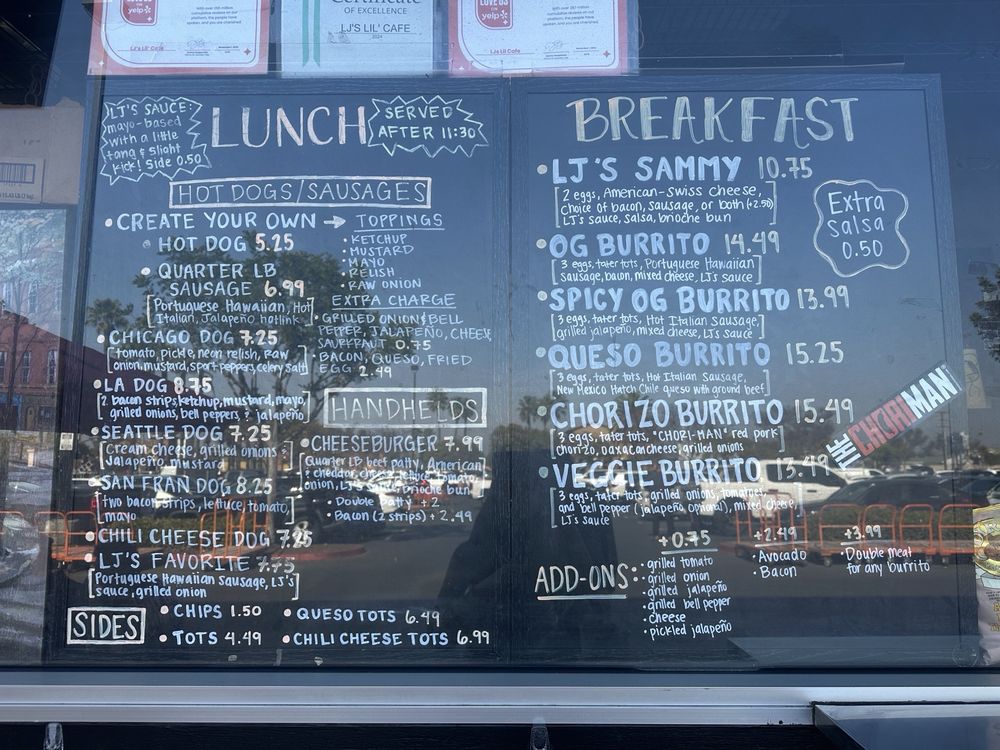 LOVE US
ON
yelp
LJ's Lil' Cafe
Certificate
OF EXCELLENCE
LJ'S LIL' CAFE
2024
LOVE US
ON
yelp
LJ's Lil Cafe
LJ'S SAUCE:
mayo-based
with a little
tang & slight
kick! Side 0.50
LUNCH
SERVED
AFTER 11:30
HOT DOGS/SAUSAGES
• CREATE YOUR OWN →
• HOT DOG 5.25
• QUARTER LB
SAUSAGE 6.99
[Portuguese Hawaiian, Hot
Italian, Jalapeño hotlink]
TOPPINGS
• KETCHUP
• MUSTARD
• MAYO
• RELISH
• RAW ONION
EXTRA CHARGE
• GRILLED ONION & BELL
PEPPER, JALAPEÑO, CHEESE
SAURKRAUT 0.75
• BACON, QUESO, FRIED
EGG 2.49
• CHICAGO DOG 7.25
[tomato, pickle, neon relish, raw
onion, mustard, sport peppers, celery salt]
• LA DOG 8.75
[2 bacon strips, ketchup, mustard, mayo,
grilled onions, bell peppers & jalapeño]
• SEATTLE DOG 7.25
[Cream cheese, grilled onions &
Jalapeño, mustard]
• SAN FRAN DOG 8.25
[two bacon strips, lettuce, tomato,
mayo]
• CHILI CHEESE DOG 7.25
• LJ'S FAVORITE 7.75
[Portuguese Hawaiian Sausage, LJ's
sauce, grilled onion]
HANDHELDS
• CHEESEBURGER 7.99
[Quarter LB beef patty, American
& cheddar, cheese, lettuce, tomato,
onion, LJ's sauce, brioche bun]
• Double Patty + 2
• Bacon (2 strips) + 2.49
SIDES
• CHIPS 1.50
• QUESO TOTS 6.49
• TOTS 4.49
• CHILI CHEESE TOTS 6.99
BREAKFAST
• LJ'S SAMMY 10.75
[2 eggs, American-Swiss cheese,
Choice of bacon, sausage, or both (+2.50)
LJ's sauce, salsa, brioche bun]
Extra
Salsa
0.50
• OG BURRITO 14.49
[3 eggs, tater tots, Portuguese Hawaiian
Sausage, bacon, mixed cheese, LJ's sauce]
• SPICY OG BURRITO 13.99
[3 eggs, tater tots, Hot Italian Sausage,
grilled jalapeño, mixed cheese, LJ's sauce]
• QUESO BURRITO 15.25
[3 eggs, tater tots, Hot Italian Sausage,
New Mexico Hatch Chile queso with ground beef]
• CHORIZO BURRITO 15.49
[3 eggs, tater tots, "CHORI-MAN" red pork
chorizo, oaxacan cheese, grilled onions]
THE CHORIMAN
• VEGGIE BURRITO 13.49
[3 eggs, tater tots, grilled onions, tomatoes,
and bell pepper (jalapeño optional), mixed cheese,
LJ's sauce]
ADD-ONS:
+0.75
• grilled tomato
• grilled onion
• grilled jalapeño
• grilled bell pepper
• cheese
• pickled jalapeño
+2.49
• Avocado
• Bacon
+3.99
• Double meat
for any burrito